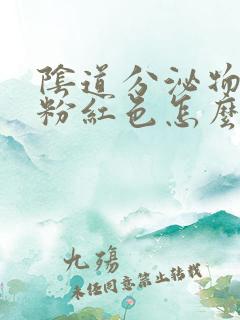 陰道分泌物
粉紅色怎麼
九殤
未经同意禁止转载